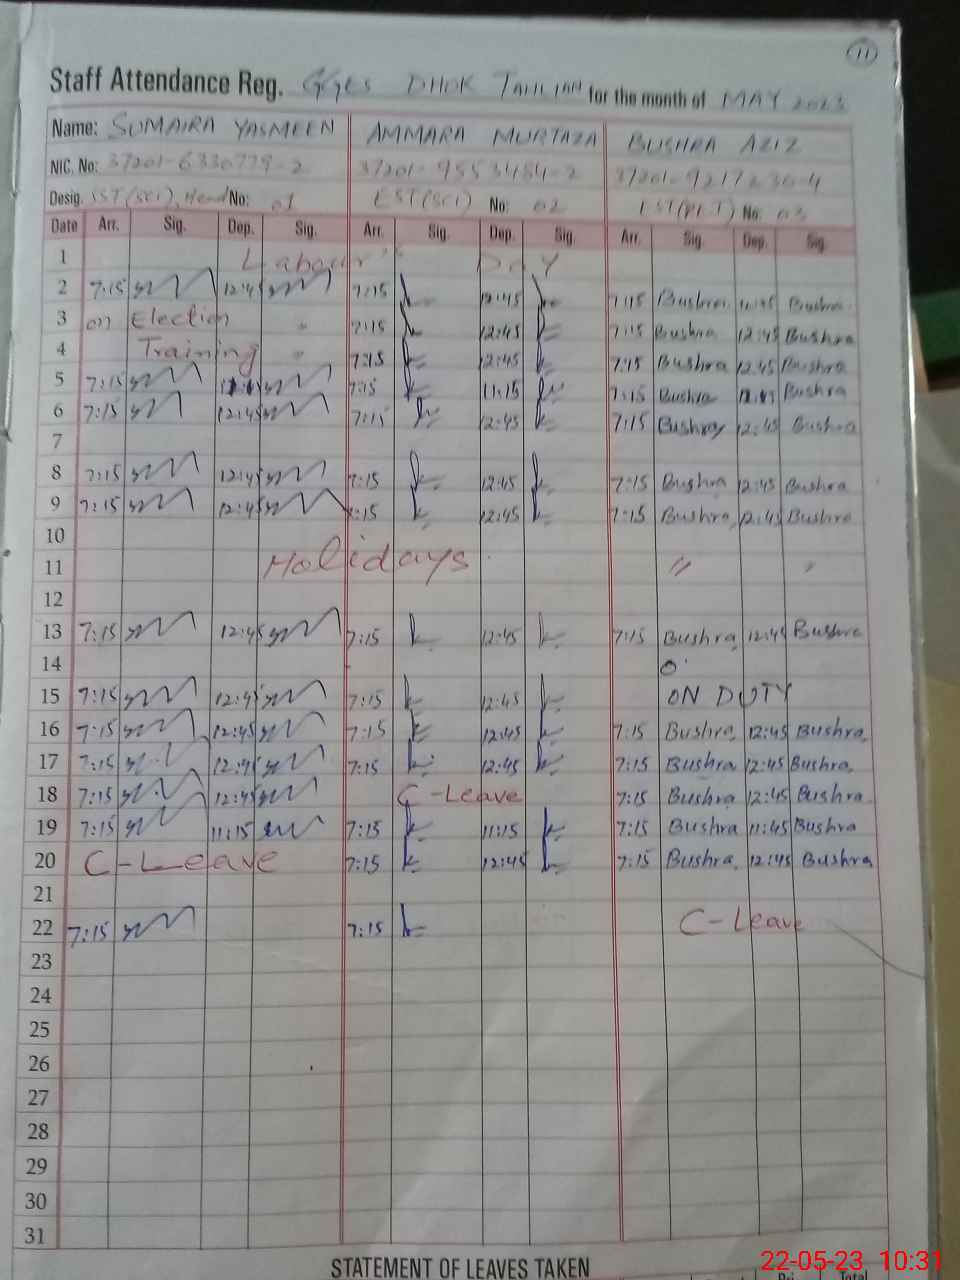 11
Staff Attendance Reg. GGES DHOK TAHLIAN for the month of MAY 2023
Name: SUMAIRA YASMEEN AMMARA MURTAZA BUSHRA AZIZ
NIC. No: 37201-6330779-2 37201-9553484-2 37201-9217236-4
Desig. SST (SCI), Head No: 01 EST (SCI) No: 02 No: 03
Date Arr. Sig. Dep. Sig. Arr. Sig. Dep. Sig. Arr. Sig. Dep. Sig.
1 Labour's Day
2 7:15 12:45 7:15 12:45 7:15 Bushra 12:45 Bushra
3 on Election " 7:15 12:45 7:15 Bushra 12:45 Bushra
4 Training " 7:15 12:45 7:15 Bushra 12:45 Bushra
5 7:15 7:15 11:15 7:15 Bushra Bushra
6 7:15 12:45 7:15 12:45 7:15 Bushra 12:45 Bushra
7
8 7:15 12:45 7:15 12:45 7:15 Bushra 12:45 Bushra
9 7:15 12:45 7:15 12:45 7:15 Bushra 12:45 Bushra
10
11 Holidays " "
12
13 7:15 12:45 7:15 12:45 7:15 Bushra 12:45 Bushra
14
15 7:15 12:45 7:15 12:45 ON DUTY
16 7:15 12:45 7:15 12:45 7:15 Bushra 12:45 Bushra
17 7:15 12:45 7:15 12:45 7:15 Bushra 12:45 Bushra
18 7:15 12:45 C-Leave 7:15 Bushra 12:45 Bushra
19 7:15 11:15 7:15 11:15 7:15 Bushra 11:45 Bushra
20 C-Leave 7:15 12:45 7:15 Bushra 12:45 Bushra
21
22 7:15 7:15 C-Leave
23
24
25
26
27
28
29
30
31
STATEMENT OF LEAVES TAKEN
22-05-23 10:31
Total